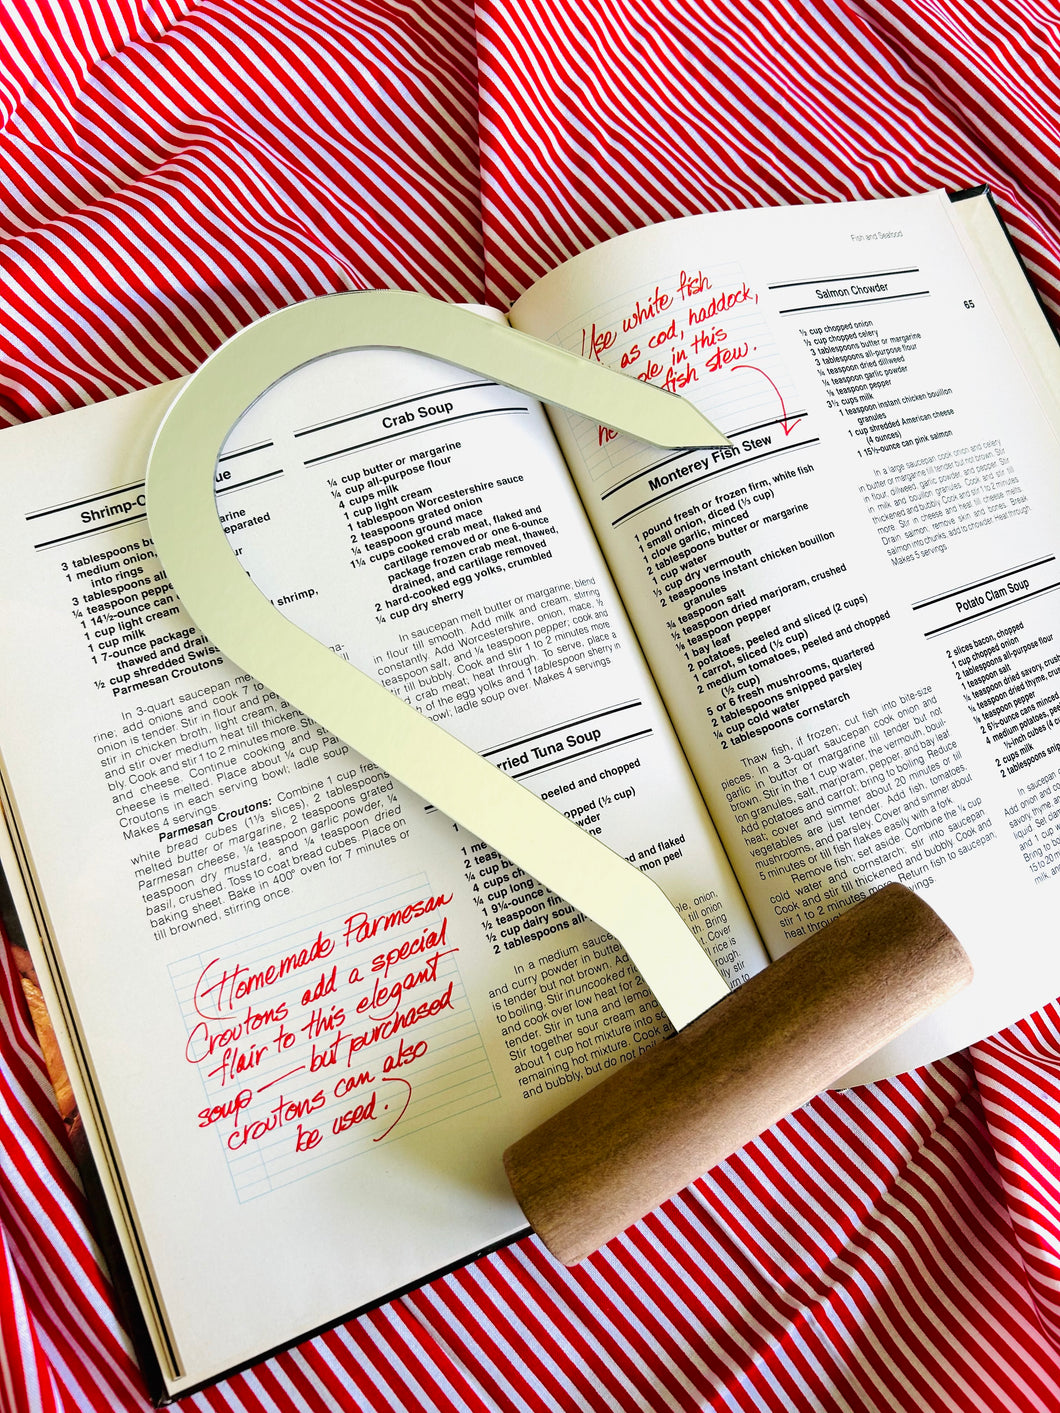 Shrimp-
Crab Soup
3 tablespoons
1 medium onion,
into rings
separated
teaspoons all
¼ teaspoon
1 14½-ounce can
1 cup light cream
1 cup milk
1 7-ounce package
shrimp,
thawed and
½ cup shredded
Parmesan Croutons
In 3-quart saucepan
rine; add onions and cook 7 to
onion is tender. Stir in flour and
in chicken broth, light cream,
and stir over medium heat till
bly. Cook and stir 1 to 2 minutes more.
and cheese. Continue cooking and
cheese is melted. Place about ¼ cup
Croutons in each serving bowl; ladle soup
Makes 4 servings.
Parmesan Croutons: Combine 1 cup
white bread cubes (1½ slices), 2 tablespoons
melted butter or margarine, 2 teaspoons grated
Parmesan cheese, ⅛ teaspoon garlic powder, ¼
teaspoon dry mustard, and ¼ teaspoon dried
basil, crushed. Toss to coat bread cubes. Place on
baking sheet. Bake in 400° oven for 7 minutes or
till browned, stirring once.
Homemade Parmesan
Croutons add a special
flair to this elegant
soup — but purchased
croutons can also
be used.
¼ cup butter or margarine
¼ cup all-purpose flour
4 cups milk
1 cup light cream
1 tablespoon Worcestershire sauce
2 teaspoons grated onion
¼ teaspoon ground mace
cups cooked crab meat, flaked and
cartilage removed or one 6-ounce
package frozen crab meat, thawed,
drained, and cartilage removed
2 hard-cooked egg yolks, crumbled
¼ cup dry sherry
In saucepan melt butter or margarine, blend
in flour till smooth. Add milk and cream, stirring
constantly. Add Worcestershire, onion, mace, ½
teaspoon salt, and ⅛ teaspoon pepper; cook and
stir till bubbly. Cook and stir 1 to 2 minutes more
crab meat; heat through. To serve, place a
of the egg yolks and 1 tablespoon sherry in
bowl; ladle soup over. Makes 4 servings
Tuna Soup
peeled and chopped
chopped (½ cup)
and flaked
lemon peel
4 cups
1 9¼-ounce
½ teaspoon
½ cup dairy sour
2 tablespoons all-
In a medium
and curry powder in butter
is tender but not brown. Add
to boiling. Stir in uncooked
and cook over low heat for
tender. Stir in tuna and lemon
Stir together sour cream and
about 1 cup hot mixture into
remaining hot mixture. Cook
and bubbly, but do not
Fish and Seafood
65
Use white fish
as cod, haddock,
in this
fish stew.
Monterey Fish Stew
1 pound fresh or frozen firm, white fish
1 small onion, diced (⅓ cup)
1 clove garlic, minced
2 tablespoons butter or margarine
1 cup water
½ cup dry vermouth
2 teaspoons instant chicken bouillon
granules
¾ teaspoon salt
½ teaspoon dried marjoram, crushed
⅛ teaspoon pepper
1 bay leaf
2 potatoes, peeled and sliced (2 cups)
1 carrot, sliced (½ cup)
2 medium tomatoes, peeled and chopped
(½ cup)
5 or 6 fresh mushrooms, quartered
2 tablespoons snipped parsley
¼ cup cold water
2 tablespoons cornstarch
Thaw fish, if frozen; cut fish into bite-size
pieces. In a 3-quart saucepan cook onion and
garlic in butter or margarine till tender but not
brown. Stir in the 1 cup water, the vermouth, bouil-
lon granules, salt, marjoram, pepper, and bay leaf
Add potatoes and carrot, bring to boiling Reduce
heat; cover and simmer about 20 minutes or till
vegetables are just tender. Add fish, tomatoes,
mushrooms, and parsley Cover and simmer about
5 minutes or till fish flakes easily with a fork.
Remove fish; set aside. Combine the ¼ cup
cold water and cornstarch; stir into saucepan
Cook and stir till thickened and bubbly Cook and
stir 1 to 2 minutes more. Return fish to saucepan,
heat through
servings
Salmon Chowder
½ cup chopped onion
½ cup chopped celery
3 tablespoons butter or margarine
3 tablespoons all-purpose flour
teaspoon dried dillweed
⅛ teaspoon garlic powder
⅛ teaspoon pepper
3½ cups milk
1 teaspoon instant chicken bouillon
granules
1 cup shredded American cheese
(4 ounces)
1 15½-ounce can pink salmon
In a large saucepan cook onion and celery
in butter or margarine till tender but not brown Stir
in flour, dillweed, garlic powder, and pepper. Stir
in milk and bouillon granules. Cook and stir till
thickened and bubbly Cook and stir 1 to 2 minutes
more Stir in cheese and heat till cheese melts
Drain salmon, remove skin and bones. Break
salmon into chunks, add to chowder Heat through.
Makes 5 servings
Potato Clam Soup
2 slices bacon, chopped
1 cup chopped onion
2 tablespoons all-purpose flour
1 teaspoon salt
teaspoon dried savory,
teaspoon dried thyme,
⅛ teaspoon pepper
2 6½-ounce cans minced
4 medium potatoes,
½-inch cubes
2 cups milk
2 tablespoons
In saucepan